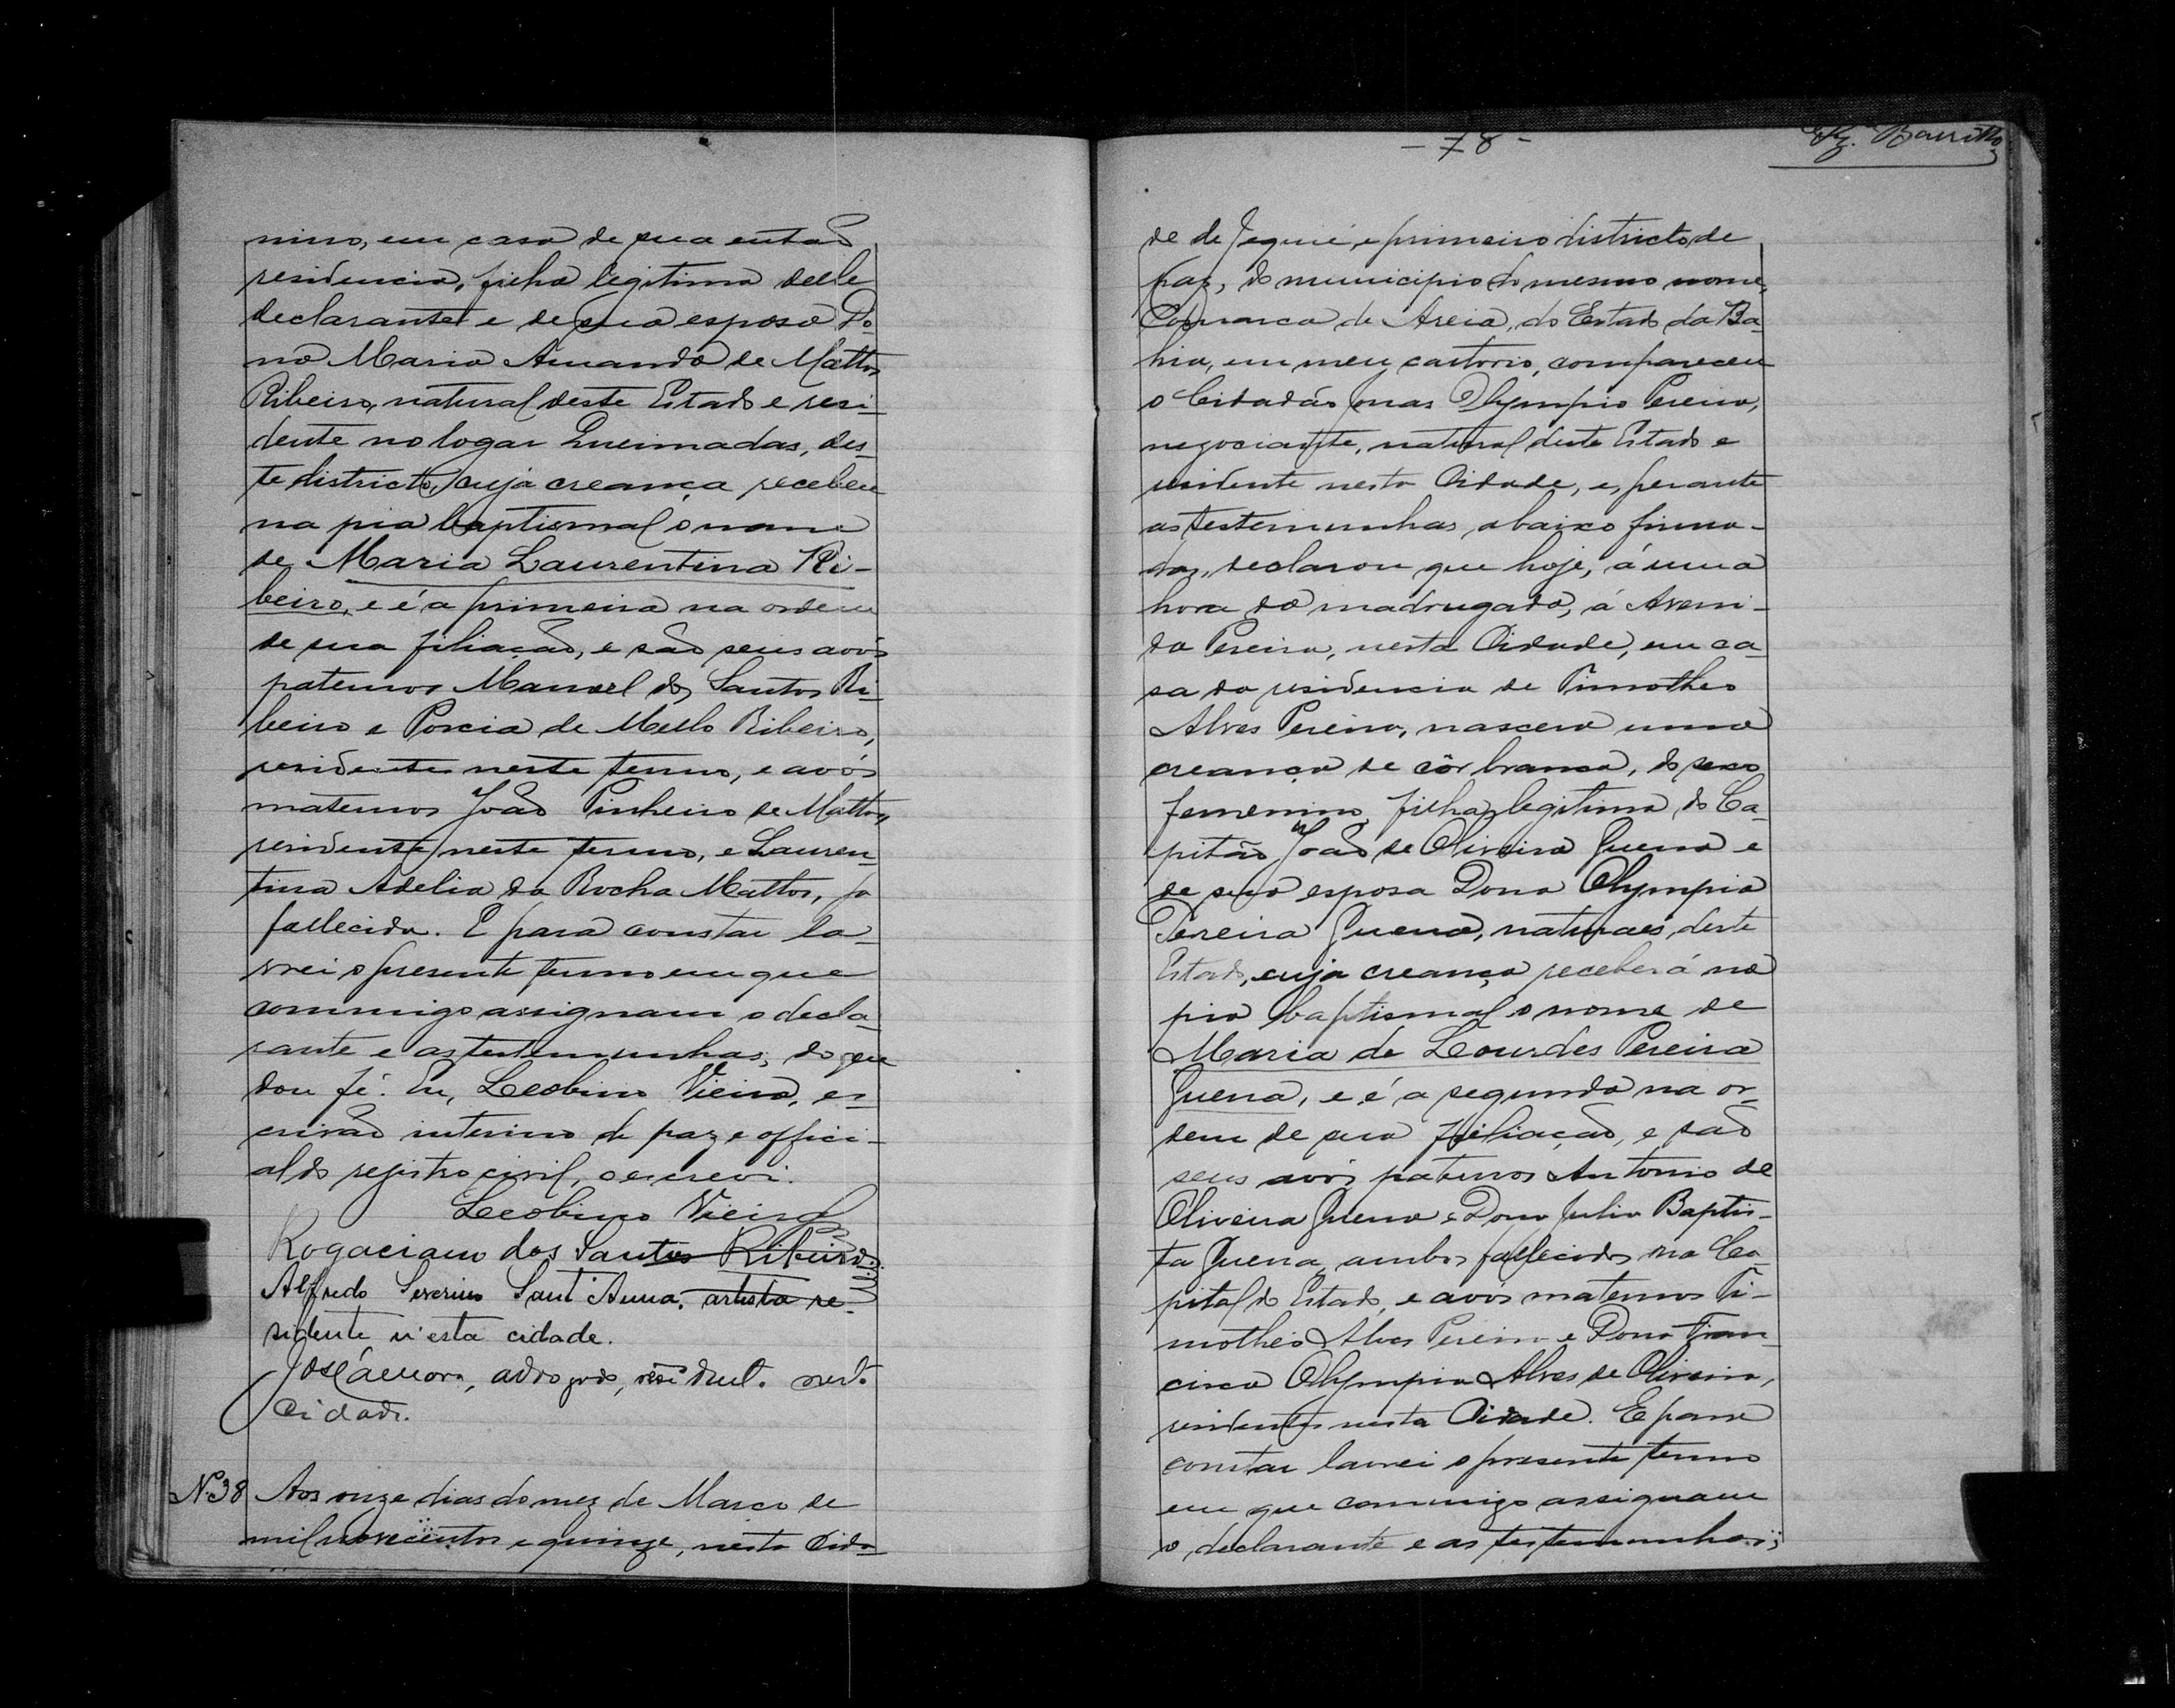 nino, em casa de sua entaõ
residencia, filha legitima delle
declarante e de sua esposa Do-
na Maria Amanda de Mattos
Ribeiro, natural deste Estado e resi-
dente no logar Queimadas, des-
te districto, cuja creança recebeu
na pia baptismal o nome
de Maria Laurentina Ri-
beiro, e é a primeira na ordem
de sua filiaçaõ, e saõ seus avós
paternos Manoel dos Santos Ri-
beiro e Porcia de Mello Ribeiro,
residentes neste termo, e avós
maternos Joaõ Pinheiro de Mattos,
residente neste termo, e Lauren-
tina Adelia da Rocha Mattos, já
fallecida. E para constar la-
vrei o presente termo em que
commigo assignam o decla-
rante e as testemunhas; do que
dou fé. Eu, Leobino Vieira, es-
crivaõ interino de paz e offici-
al do registro civil, o escrevi.
Leobino Vieira
Rogaciano dos Santos Ribeiro
Alfredo Severino Sant'Anna, artista re-
sidente n'esta cidade.
advogado, resident. nest.
Cidade.
N.38 Aos onze dias do mez de Março de
mil novecentos e quinze, nesta Cida-
- 78 -
de de Jequié e primeiro districto de
paz, do municipio do mesmo nome,
Comarca de Areia, do Estado da Ba-
hia, em meu cartorio, compareceu
o Cidadão Jonas Olympio Pereira,
negociante, natural deste Estado e
residente nesta Cidade, e, perante
as testemunhas abaixo firma-
das, declarou que hoje, á uma
hora da madrugada, á Aveni-
da Pereira, nesta Cidade, em ca-
sa da residencia de Timotheo
Alves Pereira, nascera uma
creança de côr branca, do sexo
femenino, filha legitima do Ca-
pitão Joaõ de Oliveira Guerra e
de sua esposa Dona Olympia
Pereira Guerra, naturaes deste
Estado, cuja creança receberá na
pia baptismal o nome de
Maria de Lourdes Pereira
Guerra, e é a segunda na or-
dem de sua filiaçaõ, e saõ
seus avós paternos Antonio de
Oliveira Guerra e Dona Julia Baptis-
ta Guerra, ambos fallecidos na Ca-
pital do Estado, e avós maternos Ti-
motheo Alves Pereira e Dona Fran-
cisca Olympia Alves de Oliveira,
residentes nesta Cidade. E para
constar lavrei o presente termo
em que commigo assignam
o declarante e as testemunhas;